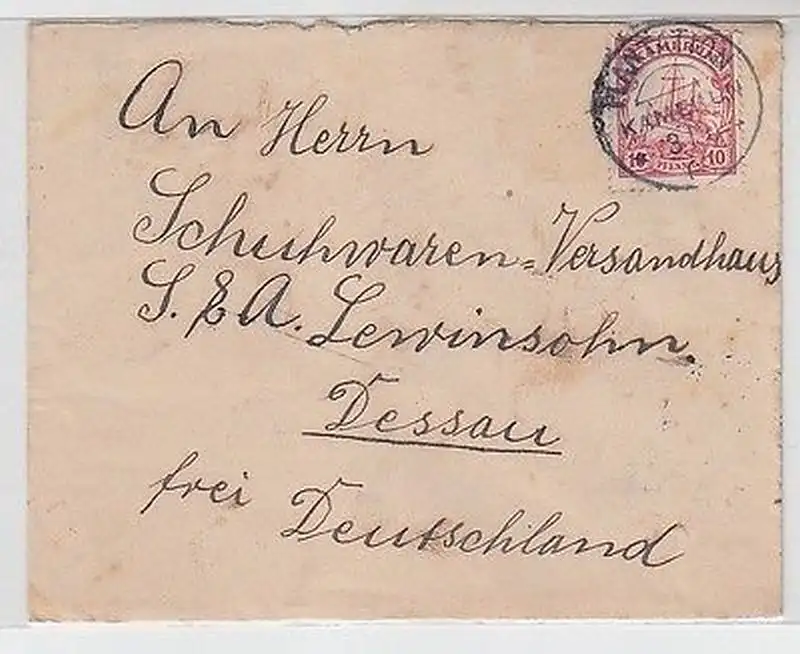 KAMERUN
KAMERUN
3
10 PFENNIG 10
An Herrn
Schuhwaren=Versandhaus
S. & A. Lewinsohn.
Dessau
frei Deutschland